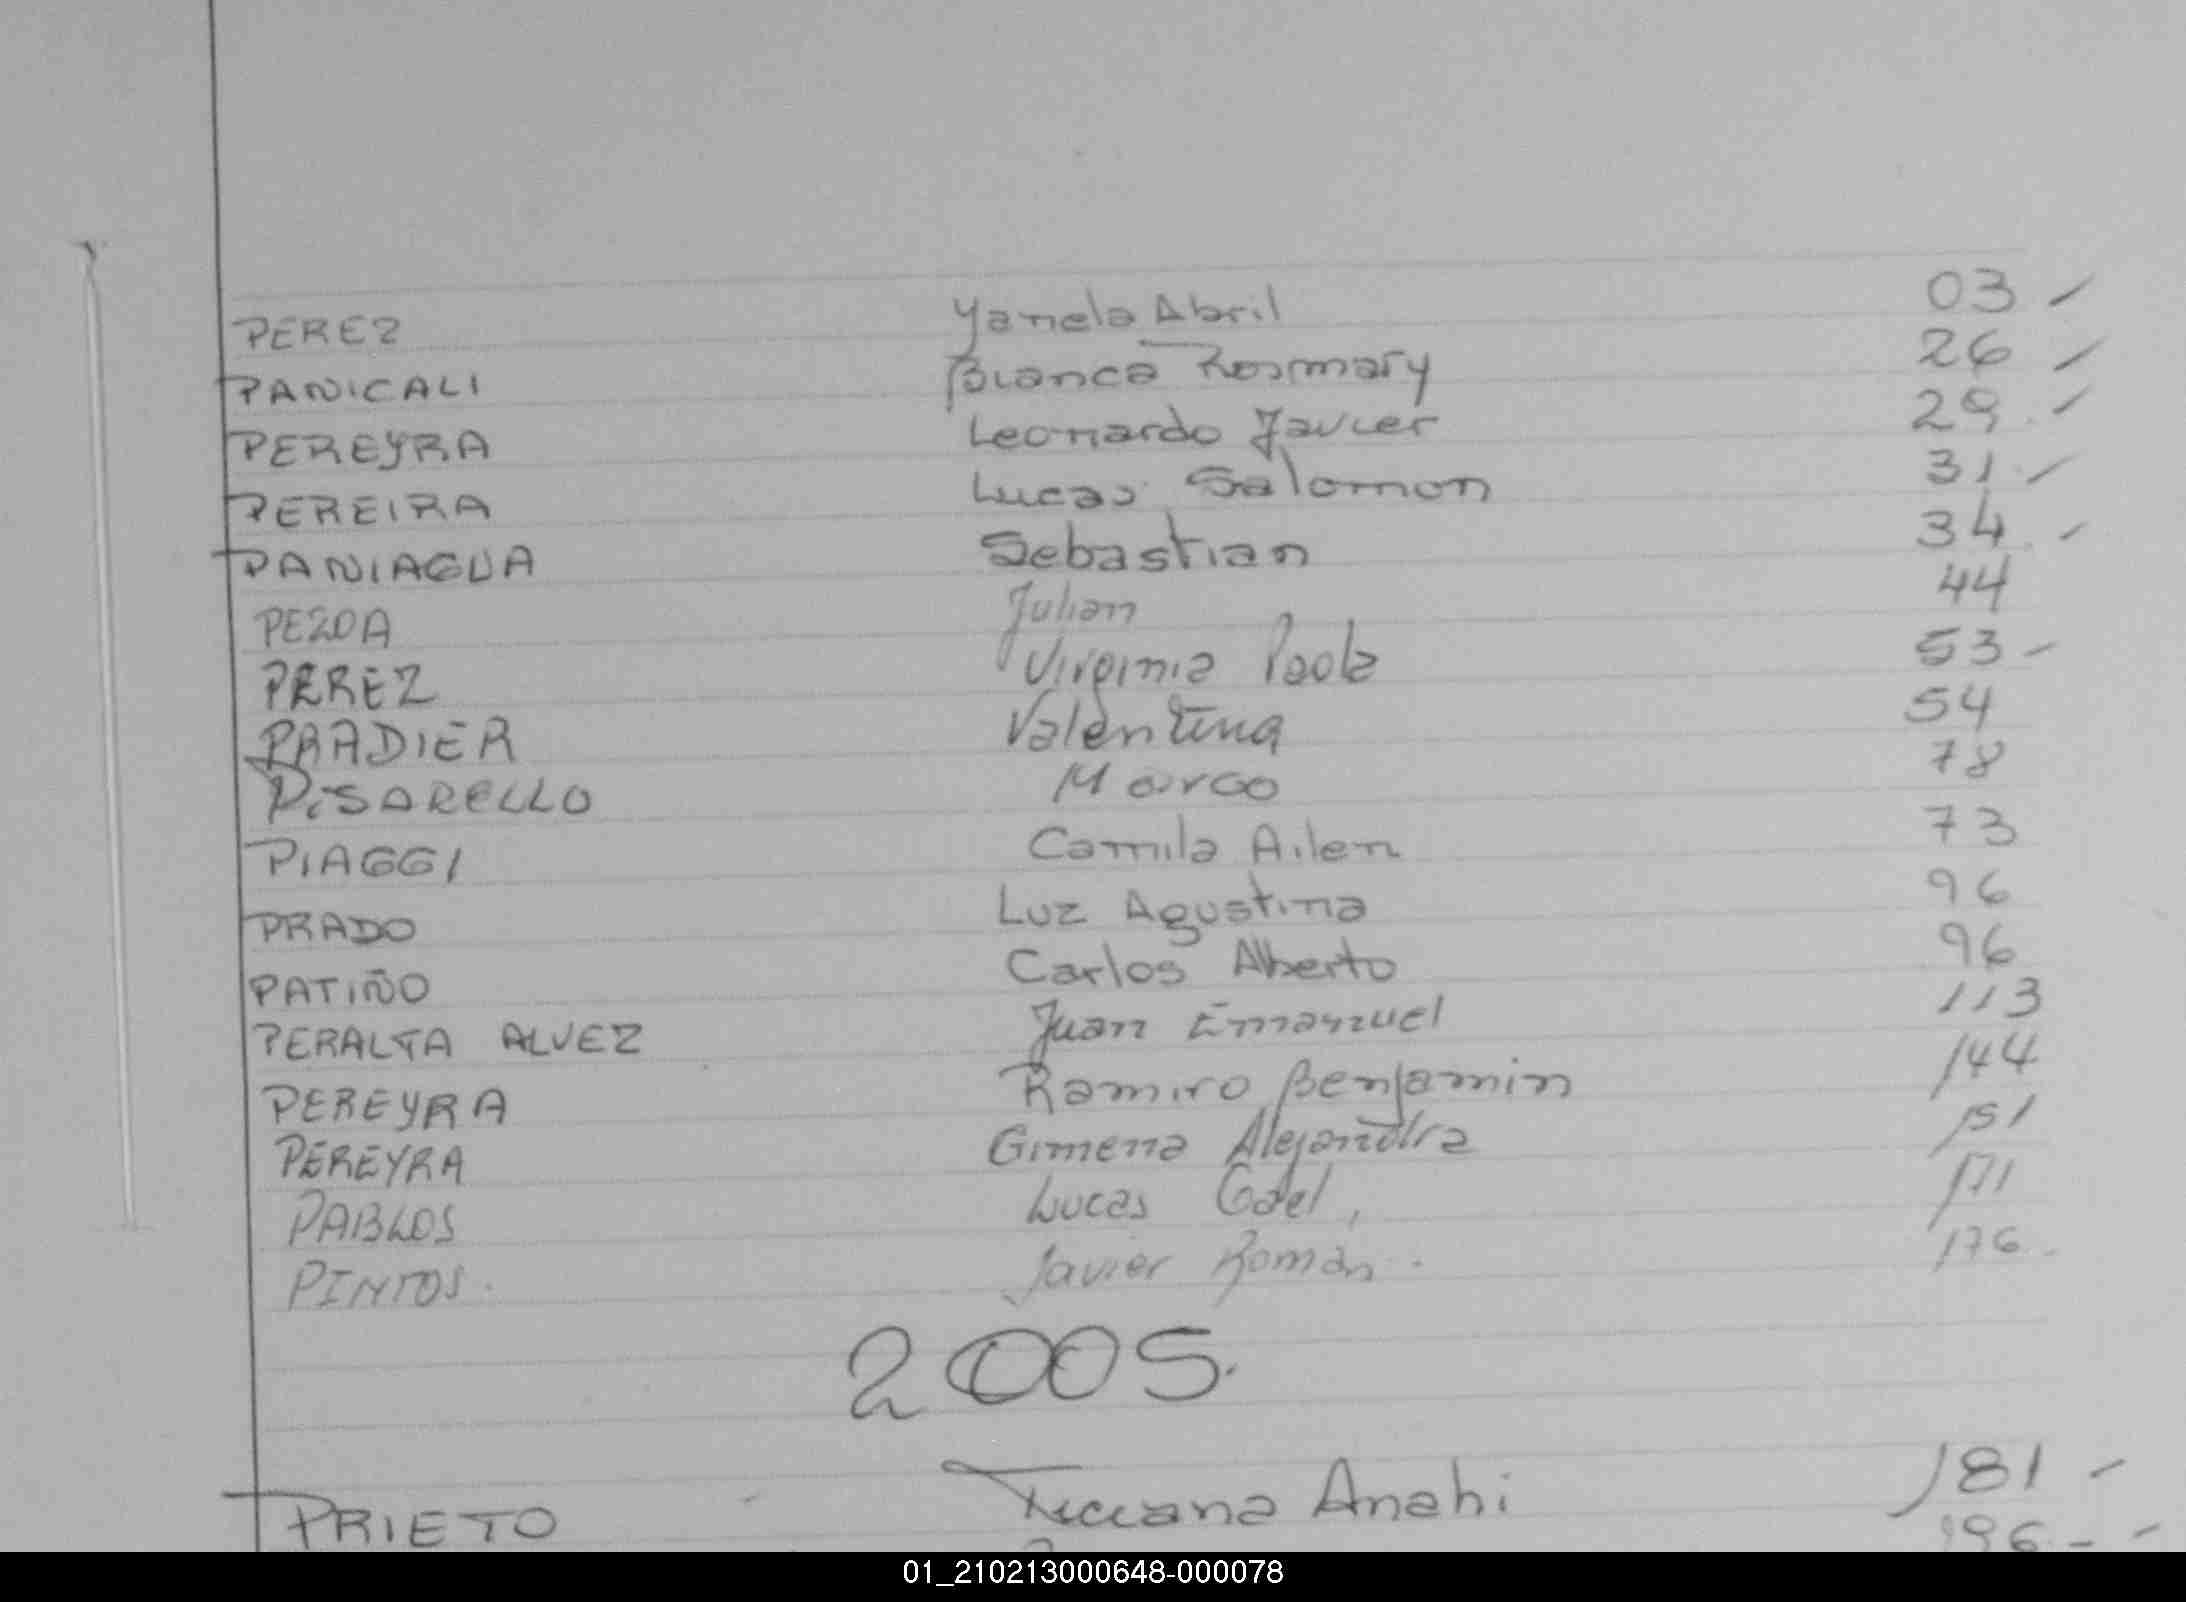 PEREZ Yanela Abril 03 -
PANICALI Bianca Rosmary 26 -
PEREYRA Leonardo Javier 29. -
PEREIRA Lucas Salomon 31. -
PANIAGUA Sebastian 34. -
PEZOA Julian 44
PEREZ Virginia Paola 53 -
PRADIER Valentina 54
PiSARELLO Marco 78
PIAGGI Camila Ailen 73
PRADO Luz Agustina 96
PATIÑO Carlos Alberto 96
PERALTA ALVEZ Juan Emmanuel 113
PEREYRA Ramiro Benjamin 144
PEREYRA Gimena Alejandra 151
PABLOS Lucas Gael, 171
PINTOS. Javier Román. 176.
2005.
PRIETO - Ticciana Anahi 181 -
196. - -
01_210213000648-000078